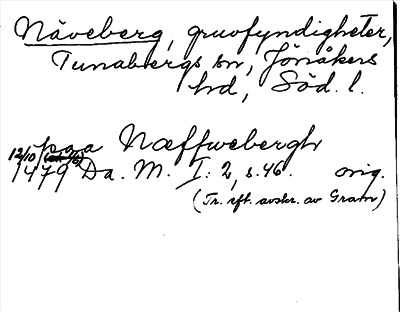 Näveberg, gruvfyndigheter,
Tunabergs sn, Jönåkers
hd, Söd. l.
paa Næffwebergh
12/10 1479 Da. M. I: 2, s. 46. orig.
(Tr. eft. avskr. av Gram)